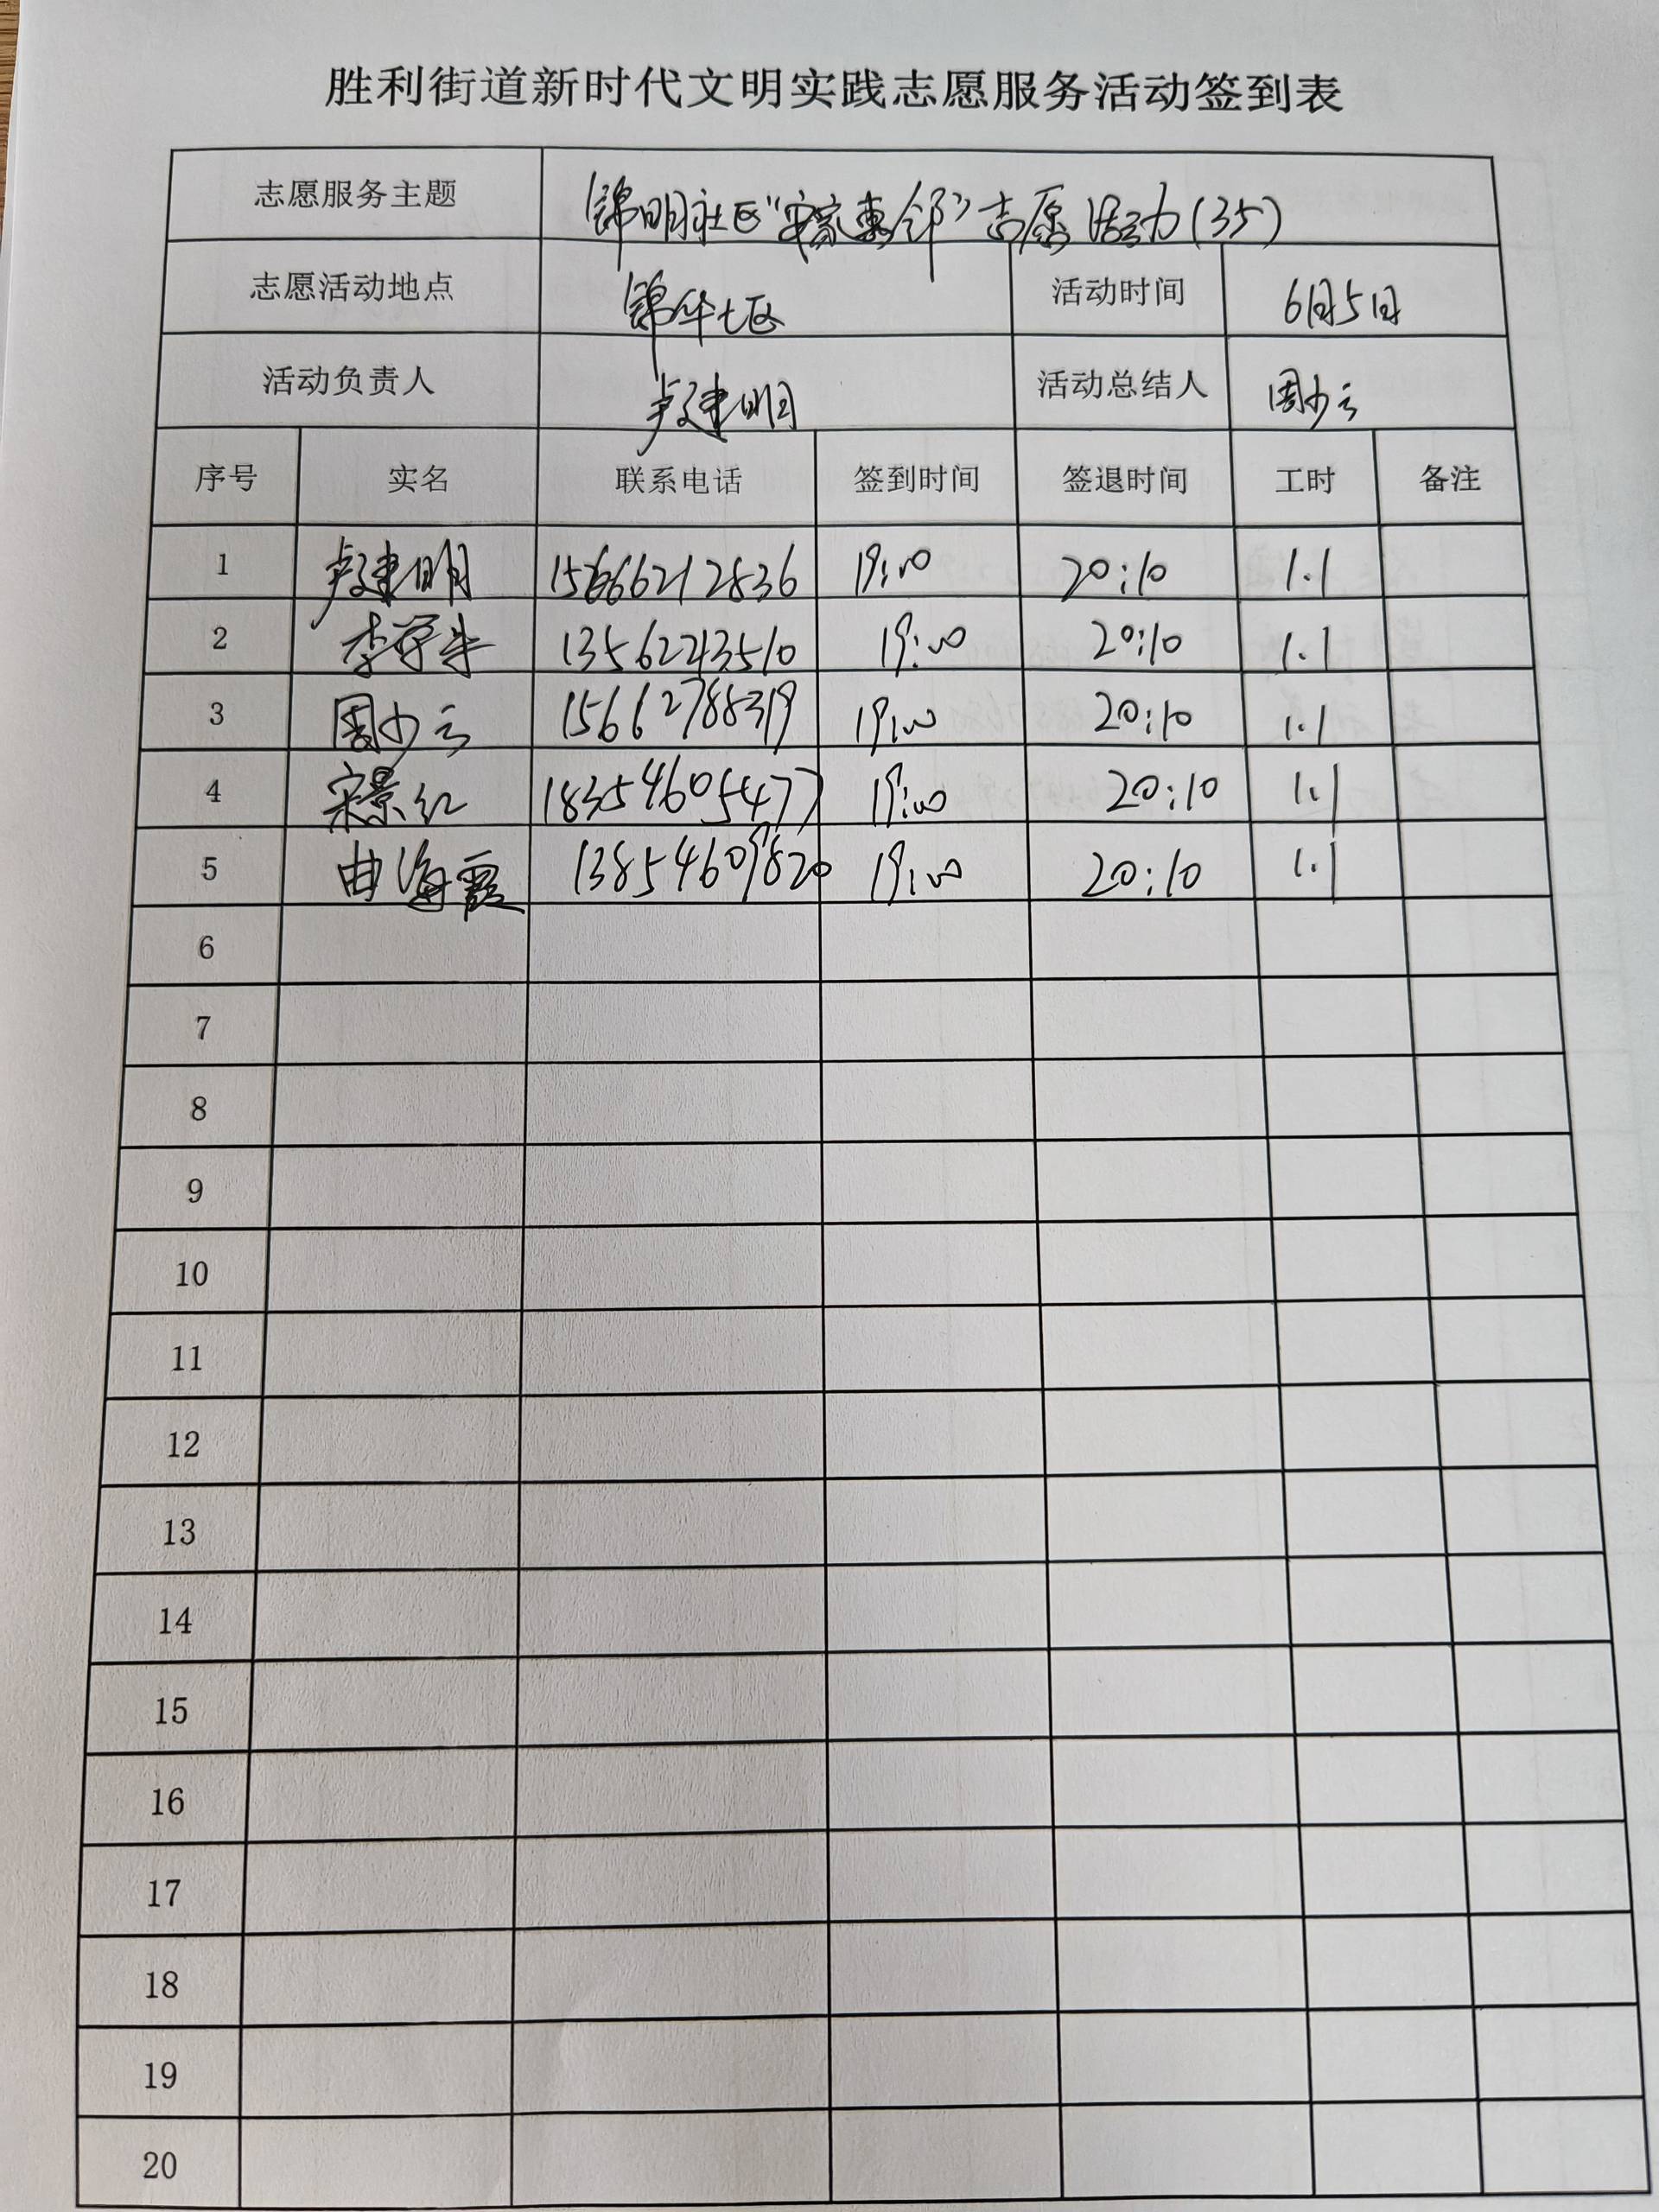 胜利街道新时代文明实践志愿服务活动签到表
志愿服务主题 锦明社区"安家惠邻"志愿活动(35)
志愿活动地点 锦华七区 活动时间 6月5日
活动负责人 卢建明 活动总结人 周少云
序号 实名 联系电话 签到时间 签退时间 工时 备注
1 卢建明 15666212836 19:00 20:10 1.1
2 李学 13562243510 19:00 20:10 1.1
3 周少云 15662788319 19:00 20:10 1.1
4 宋景红 18354605477 19:00 20:10 1.1
5 曲海霞 13854609820 19:00 20:10 1.1
6
7
8
9
10
11
12
13
14
15
16
17
18
19
20